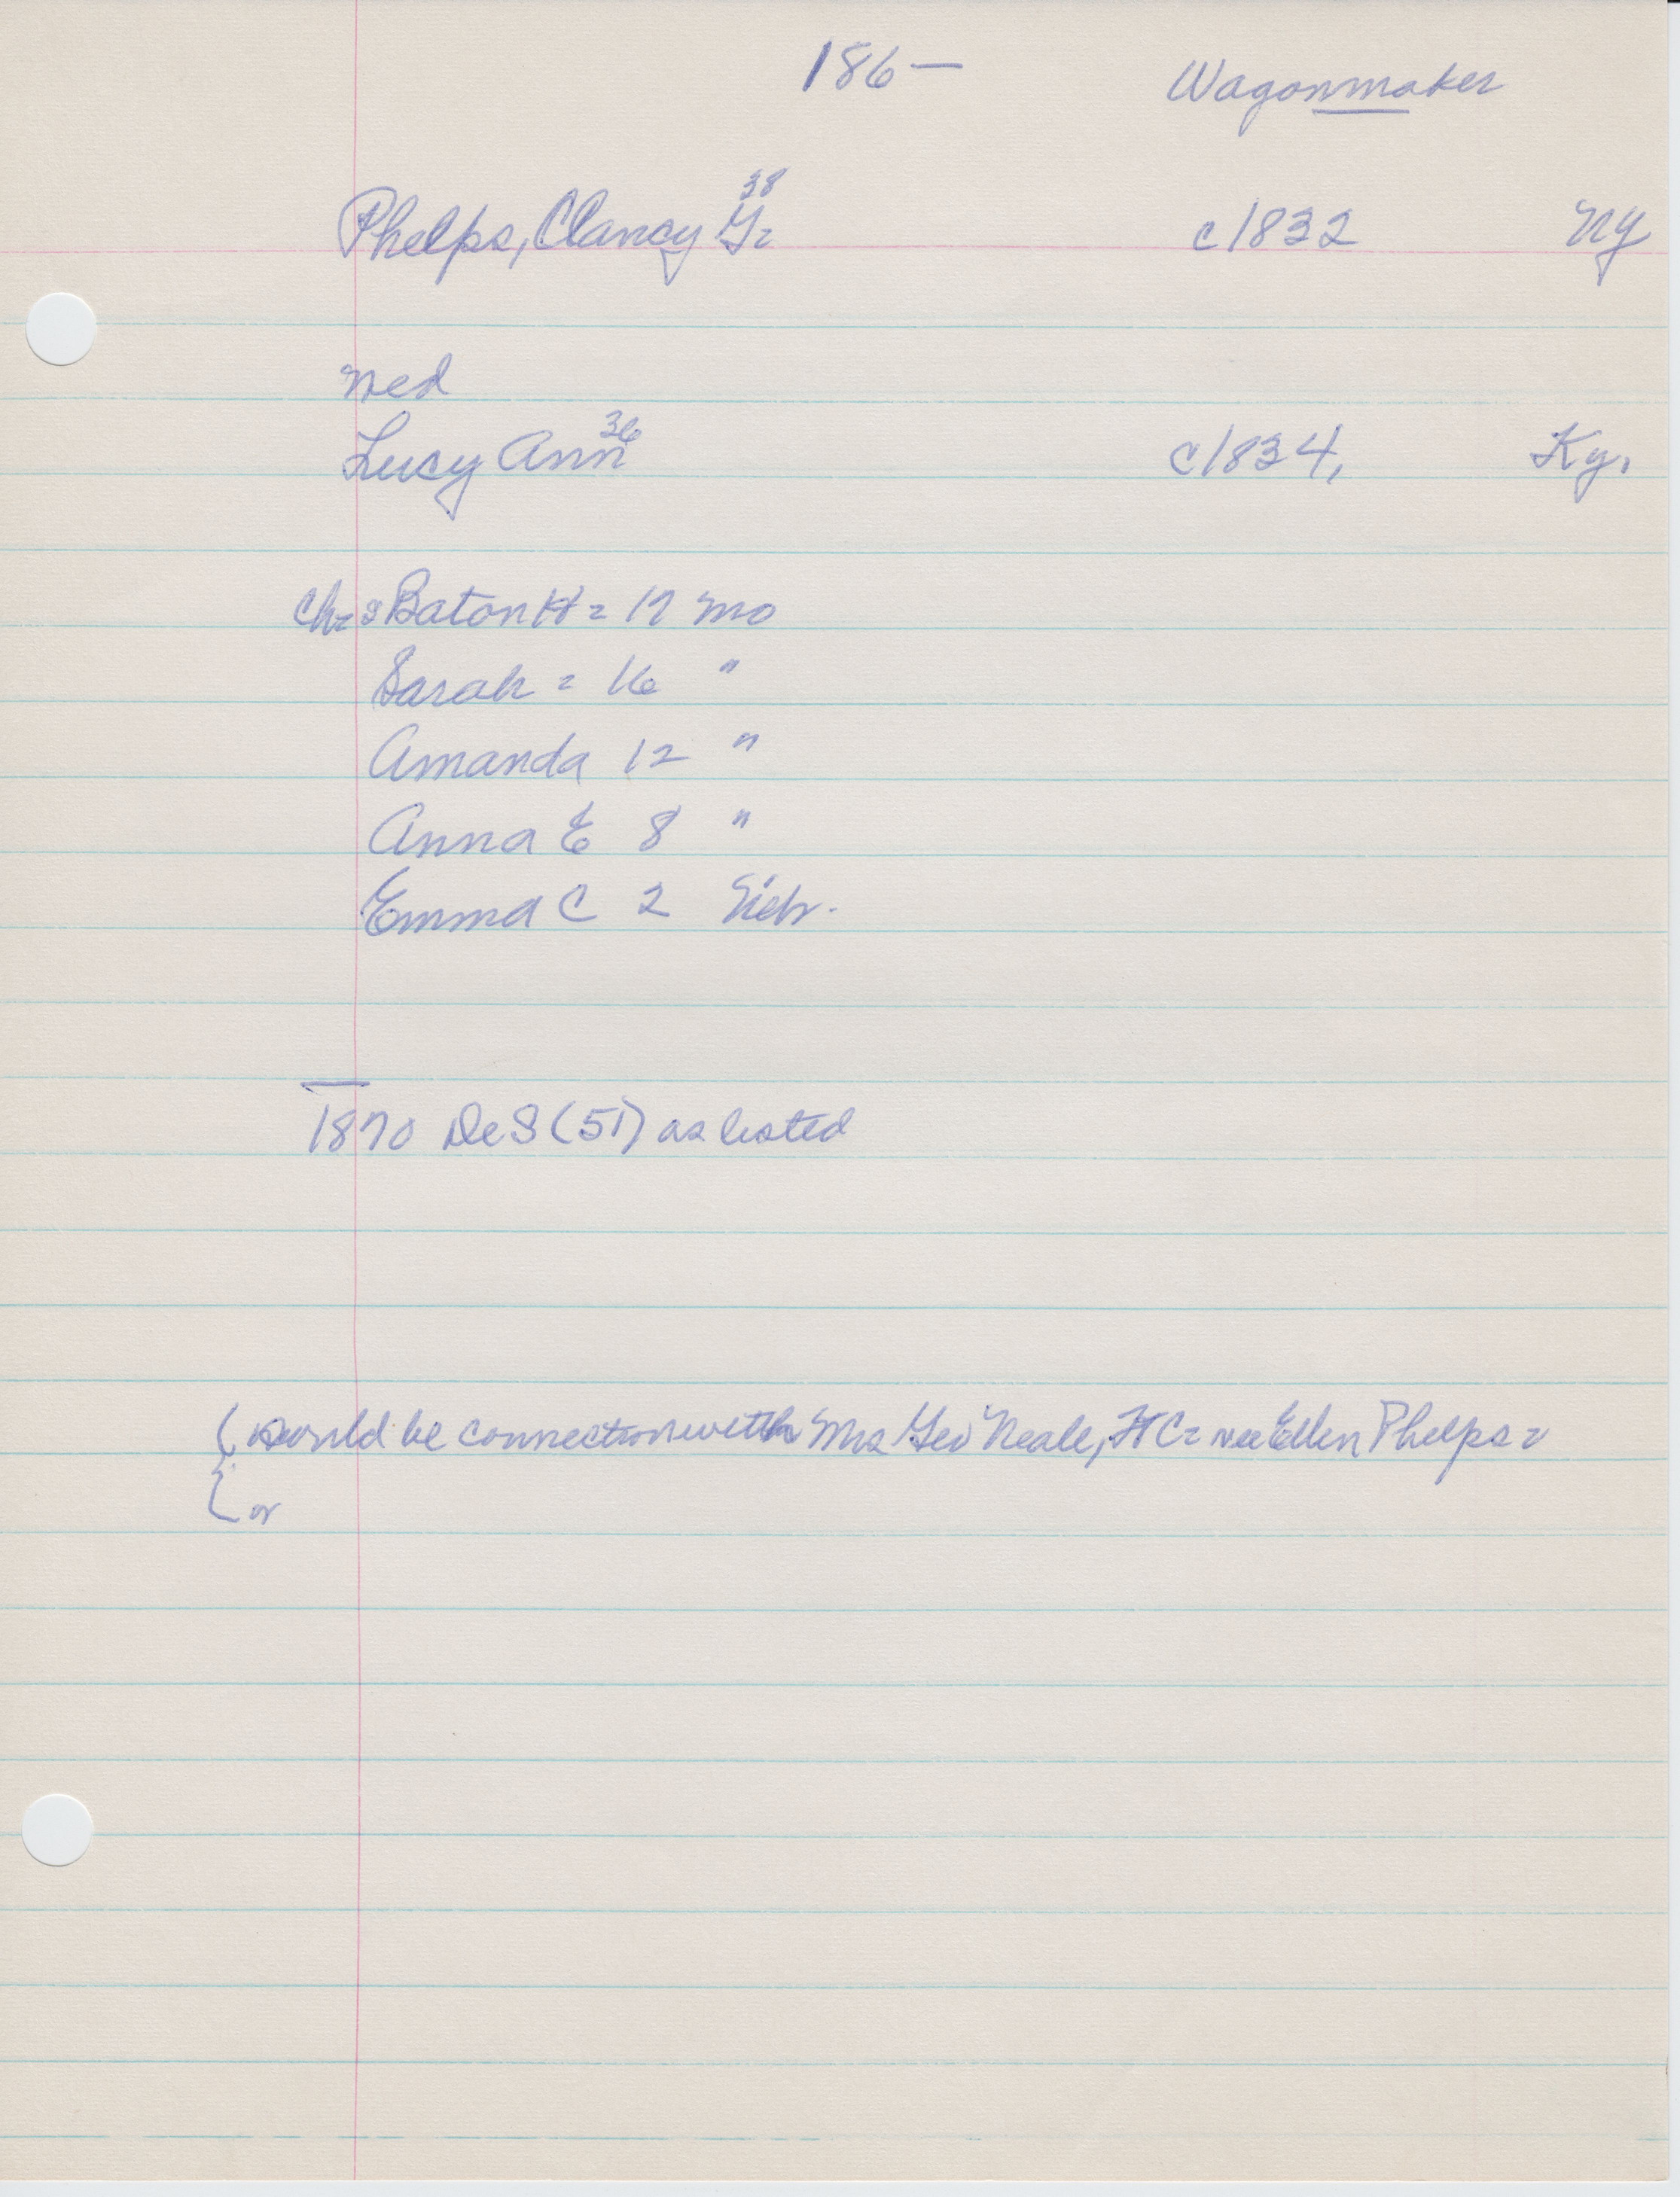 186— Wagonmaker
Phelps, Clancy G= 38 c1832 NY
med
Lucy Ann 36 c1834, Ky.
Ch= Baton H = 17 Mo
Sarah = 16 "
Amanda 12 "
Anna E 8 "
Emma C 2 Nebr.
1870 DeS (51) as listed
( would be connection with Mrs Geo Neale, FC= nee Ellen Phelps =
{ or